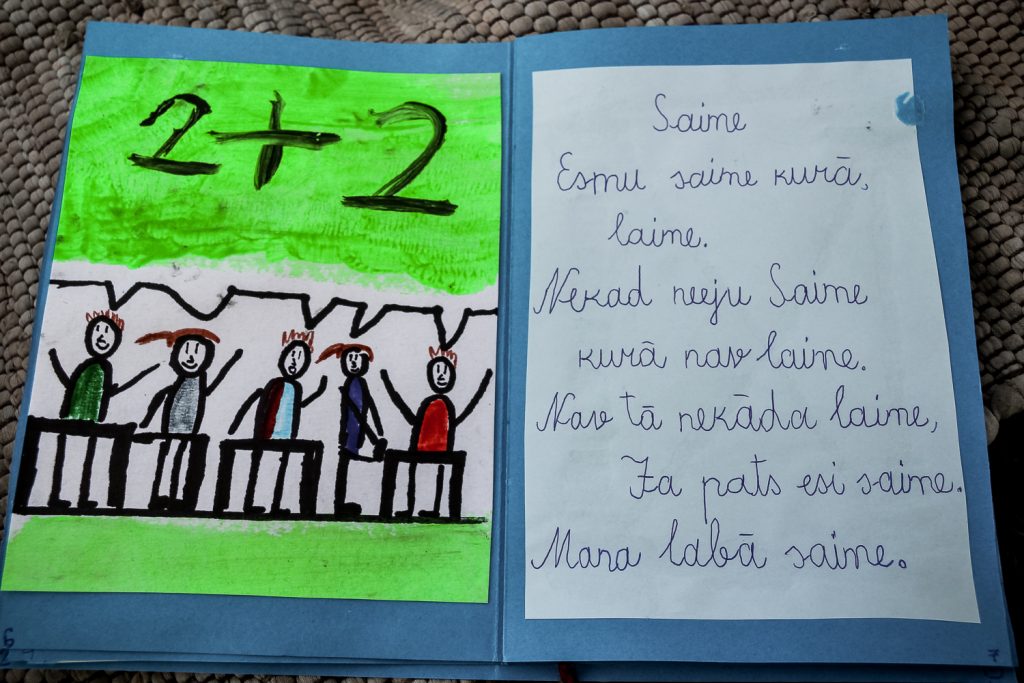 2+2
Saime
Esmu saime kurā,
laime.
Nekad neeju Saime
kurā nav laime.
Nav tā nekāda laime,
Ja pats esi saime.
Mana labā saime.
6
7